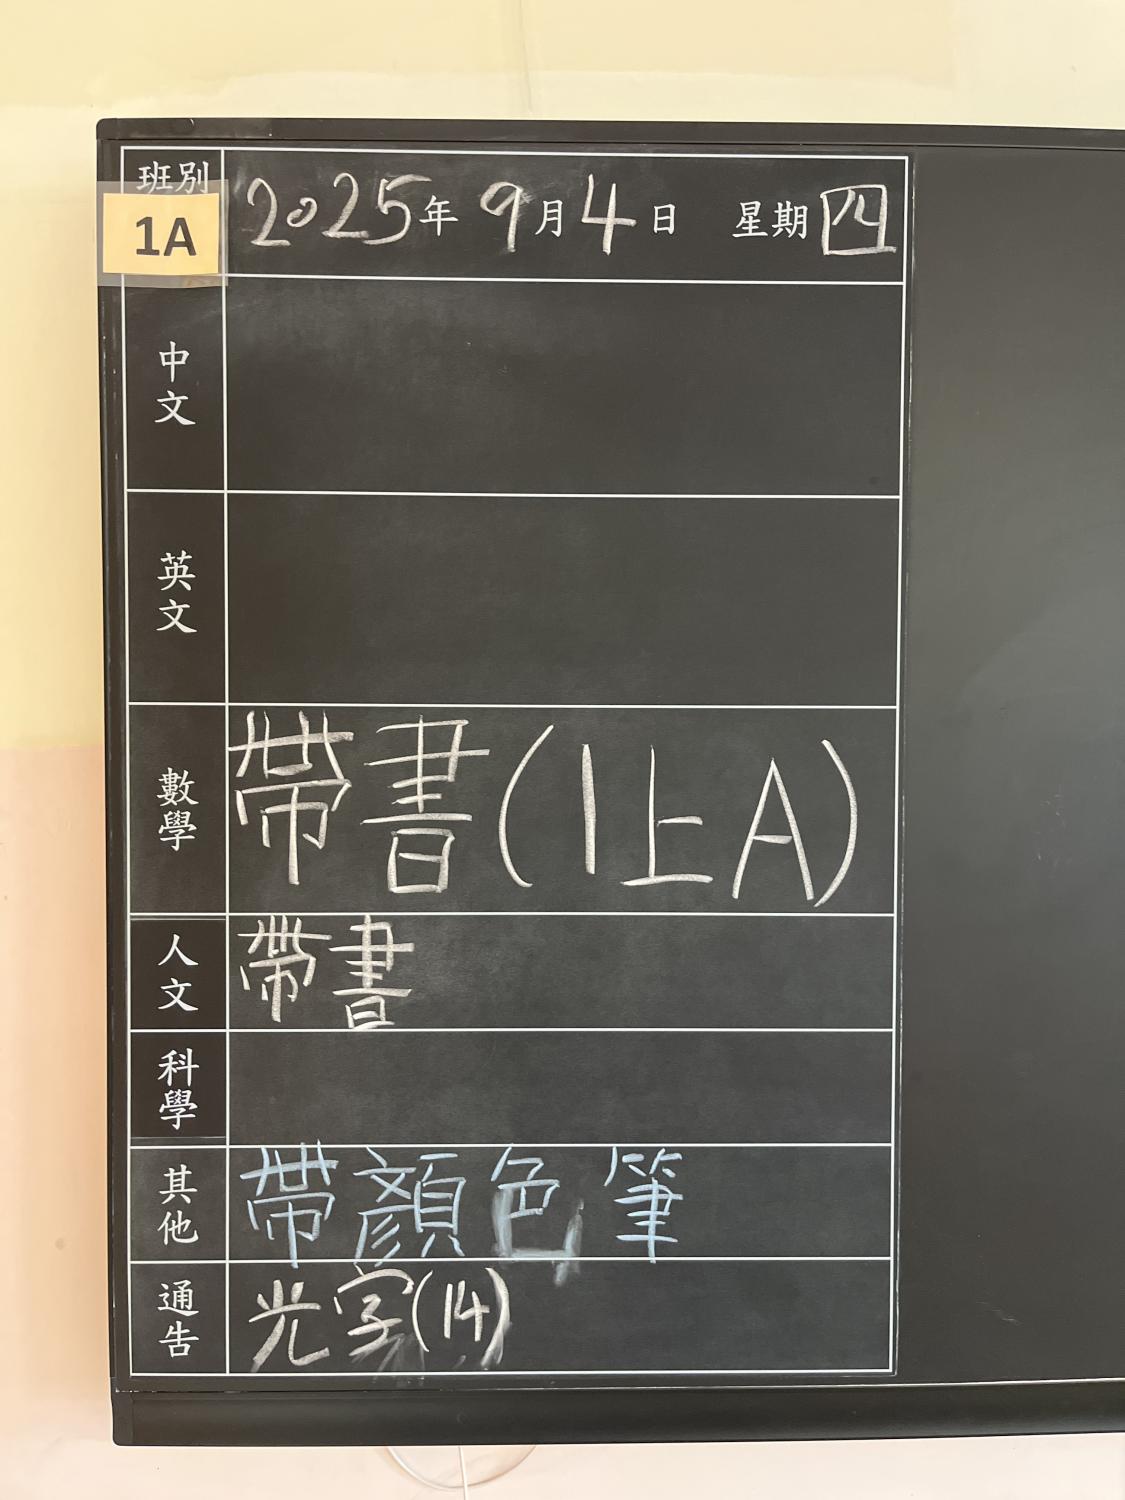 班別
1A
2025年 9月4日 星期四
中文
英文
數學
帶書(1上A)
人文
帶書
科學
其他
帶顏色筆
通告
光字(14)